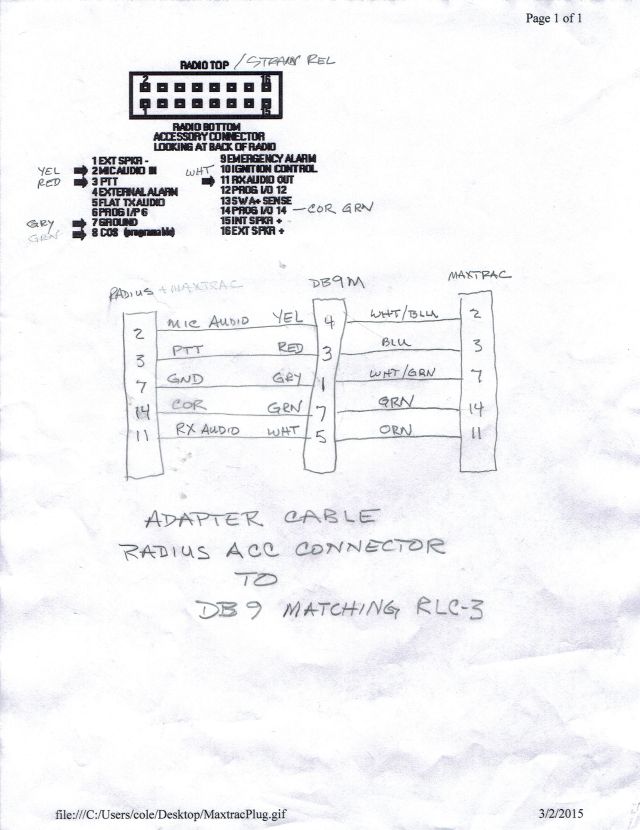 Page 1 of 1
RADIO TOP / STRAIN REL
2 16
1 15
RADIO BOTTOM
ACCESSORY CONNECTOR
LOOKING AT BACK OF RADIO
1 EXT SPKR -
YEL 2 MIC AUDIO IN
RED 3 PTT
4 EXTERNAL ALARM
5 FLAT TX AUDIO
6 PROG I/P 6
GRY 7 GROUND
GRN 8 COS (programable)
9 EMERGENCY ALARM
WHT 10 IGNITION CONTROL
11 RX AUDIO OUT
12 PROG I/O 12
13 SWA+ SENSE
14 PROG I/O 14 - COR GRN
15 INT SPKR +
16 EXT SPKR +
RADIUS + MAXTRAC DB9M MAXTRAC
2 MIC AUDIO YEL 4 WHT/BLU 2
3 PTT RED 3 BLU 3
7 GND GRY 1 WHT/GRN 7
14 COR GRN 7 GRN 14
11 RX AUDIO WHT 5 ORN 11
ADAPTER CABLE
RADIUS ACC CONNECTOR
TO
DB9 MATCHING RLC-3
file:///C:/Users/cole/Desktop/MaxtracPlug.gif 3/2/2015